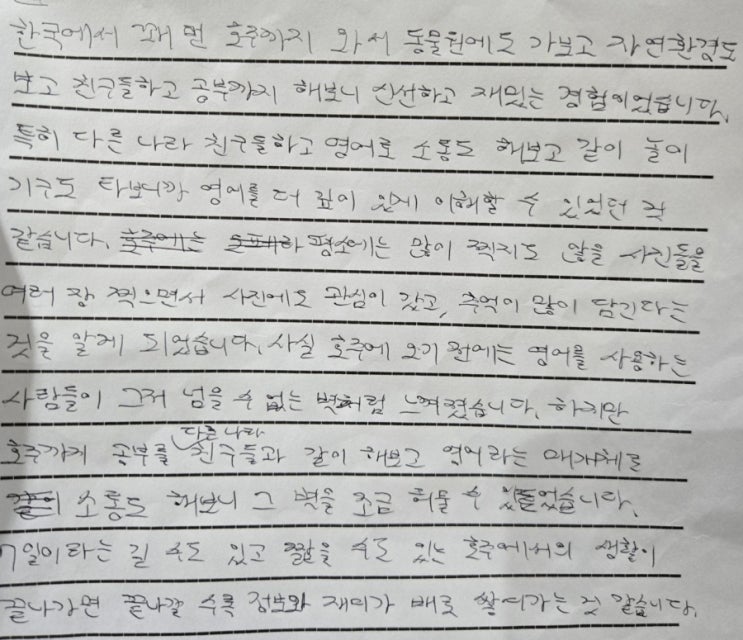 한국에서 꽤 먼 호주까지 와서 동물원에도 가보고 자연환경도
보고 친구들하고 공부까지 해보니 신선하고 재밌는 경험이었습니다.
특히 다른 나라 친구들하고 영어로 소통도 해보고 같이 놀이
기구도 타보니까 영어를 더 깊이 있게 이해할 수 있었던 것
같습니다. 호주에는 평소에는 많이 찍지도 않을 사진들을
여러 장 찍으면서 사진에도 관심이 갔고, 추억이 많이 담긴다는
것을 알게 되었습니다. 사실 호주에 오기 전에는 영어를 사용하는
사람들이 그저 넘을 수 없는 벽처럼 느껴졌습니다. 하지만
다른 나라
호주까지 공부를 친구들과 같이 해보고 영어라는 매개체로
소통도 해보니 그 벽을 조금 허물 수 있었습니다.
7일이라는 길 수도 있고 짧을 수도 있는 호주에서의 생활이
끝나가면 끝나갈 수록 정보와 재미가 배로 쌓여가는 것 같습니다.